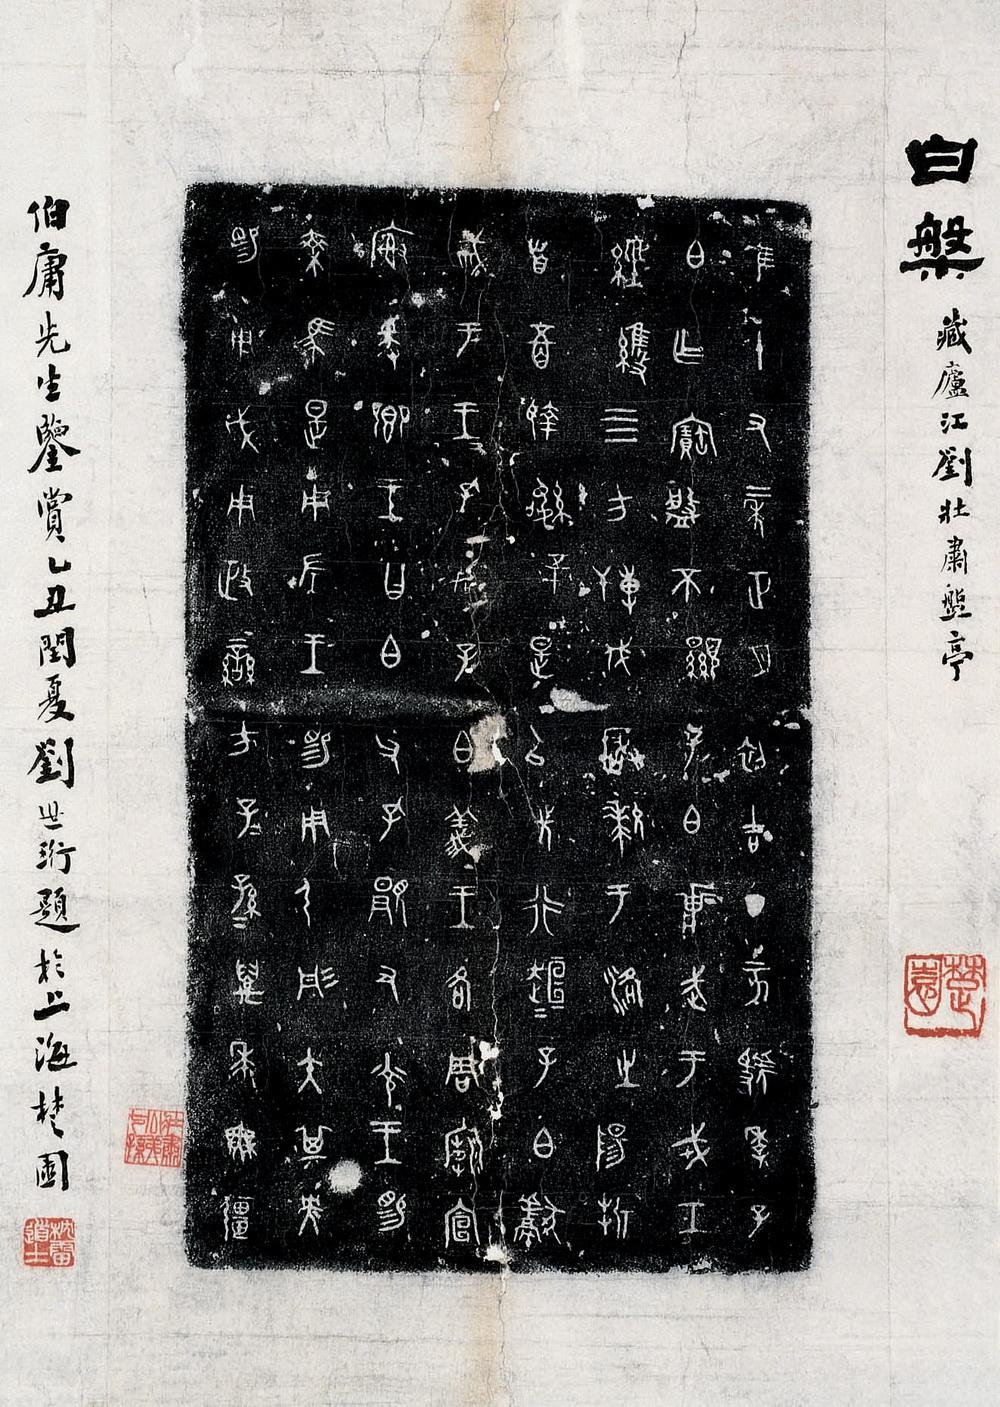 白盤
藏廬江劉壯肅盤亭
楚園
隹十又二年正月初吉丁亥虢季子
白乍寶盤不顯子白𤕌武于戎工
經維四方搏伐玁狁于洛之陽折
首五百執訊五十是以先行趄趄子白獻
聝于王王孔加子白義王各周廟宣
榭爰卿王曰白父孔顯又光王賜
乘馬是用左王賜用弓彤矢其央
賜用戉用政蠻方子子孫孫萬年無疆
伯庸先生鑒賞乙丑閏夏劉世珩題於上海楚園
枕雷道士